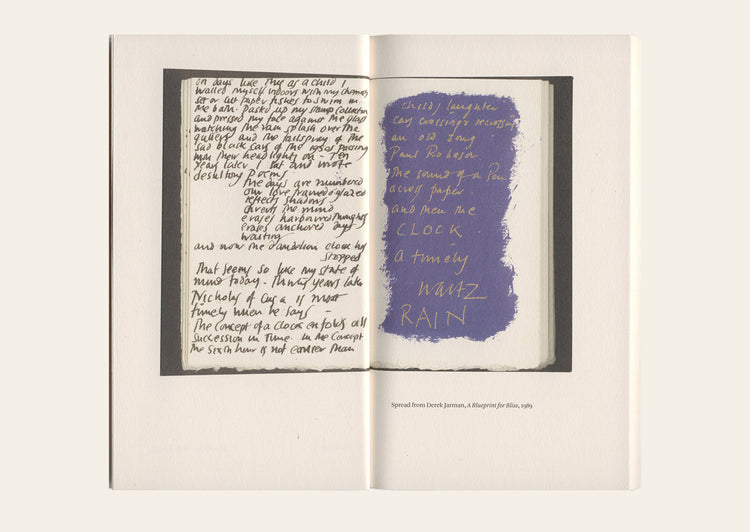 on days like this as a child I
walled myself indoors with my chemistry
set or cut paper fishes to swim in
the bath. Pasted up my stamp collection
and pressed my face against the glass
watching the rain splash over the
gutters and the tailspray of the
sad black cars of the 1950s passing
with their headlights on - Ten
years later I sat and wrote
desultory poems
the days are numbered
our love framed & glazed
reflects shadows
diverts the mind
erases harboured thoughts
erases anchored days
waiting
and now the dandelion clock has
stopped
That seems so like my state of
mind today. Thirty years later
Nicholas of Cusa is most
timely when he says -
The concept of a clock enfolds all
succession in Time. In the concept
the sixth hour is not earlier than
childs laughter
cars crossings recrossing
an old song
Paul Robeson
the sound of a Pen
across paper.
and then the
CLOCK -
a timely
WALTZ
RAIN
Spread from Derek Jarman, A Blueprint for Bliss, 1989